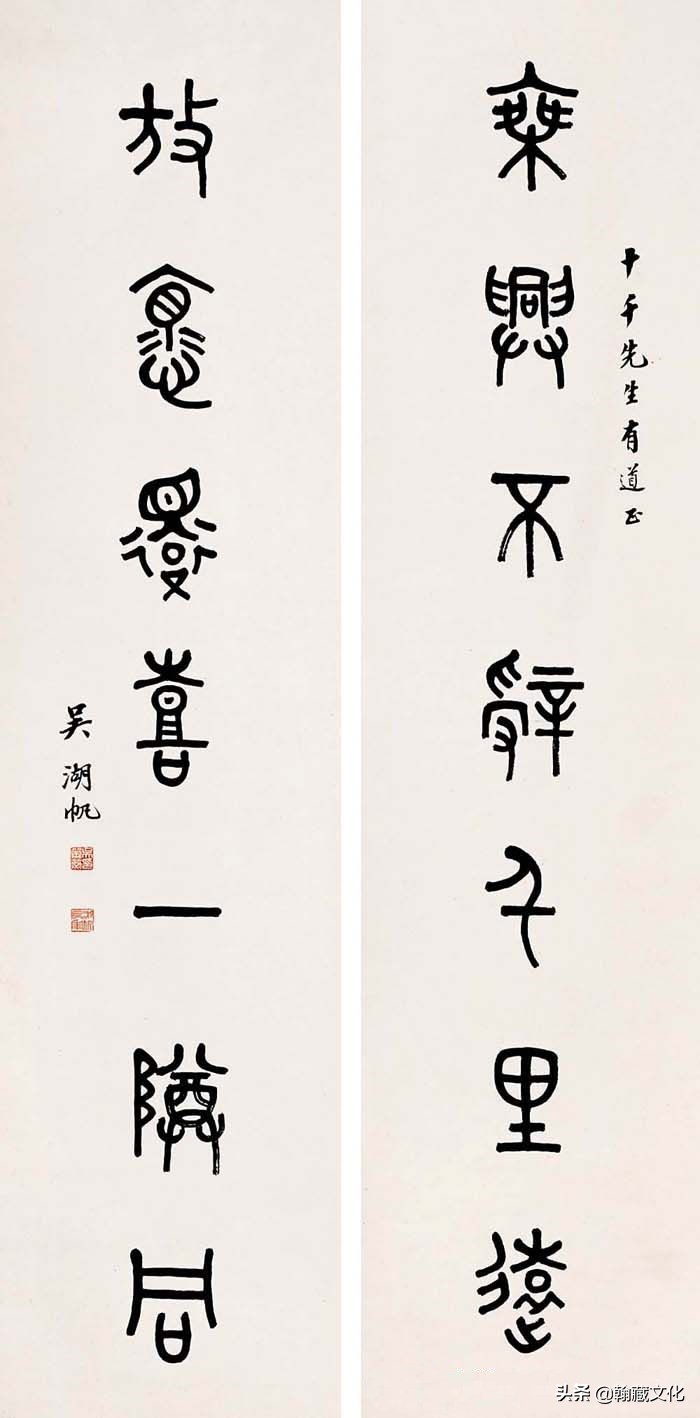 十千先生有道正
乘興不辭千里遠
放懷還喜一尊同
吳湖帆
头条 @翰藏文化